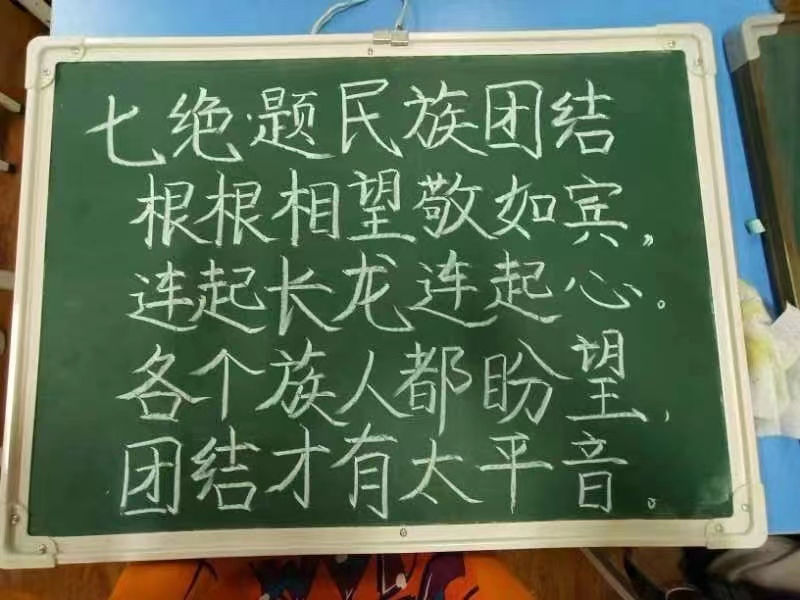 七绝·题民族团结
根根相望敬如宾，
连起长龙连起心。
各个族人都盼望，
团结才有太平音。